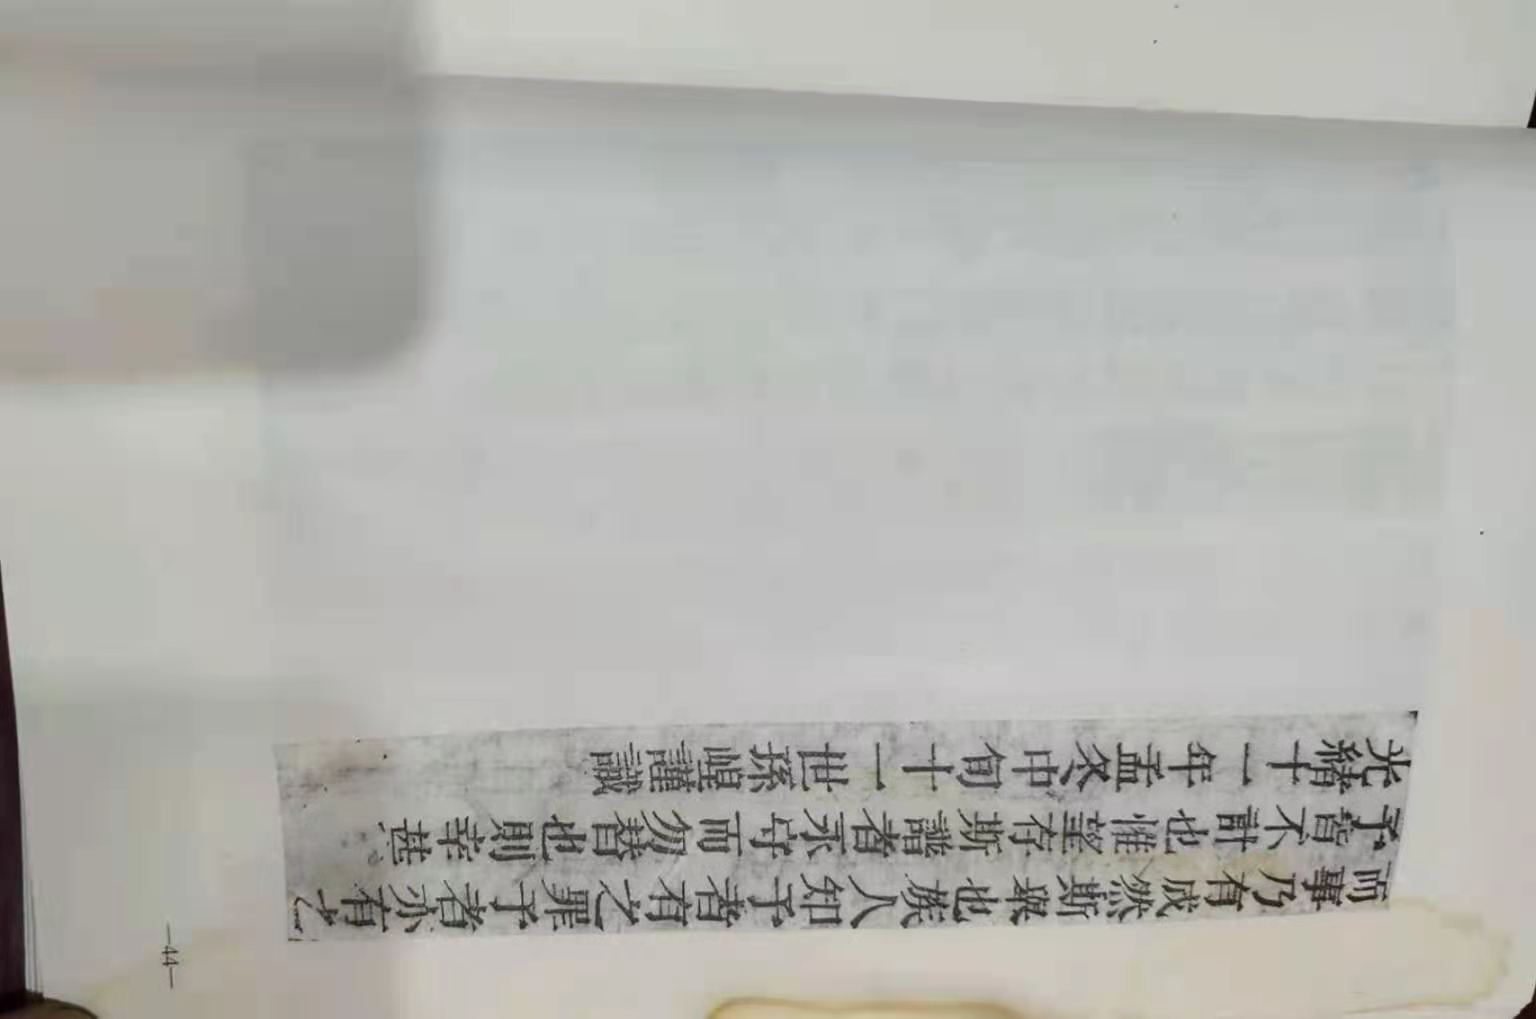 而事乃有成然斯舉也族人知予者有之罪予者亦有之
予皆不計也惟望存斯譜者永守而勿替也則幸甚
光緒十一年孟冬中旬十一世孫謹識
—44—